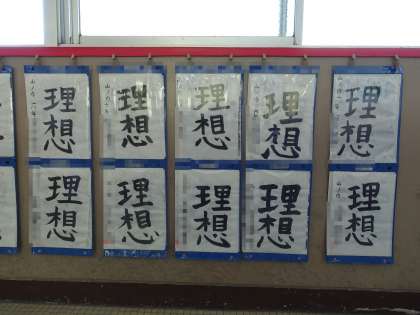 理想
理想
理想
理想
理想
理想
理想
理想
理想
理想